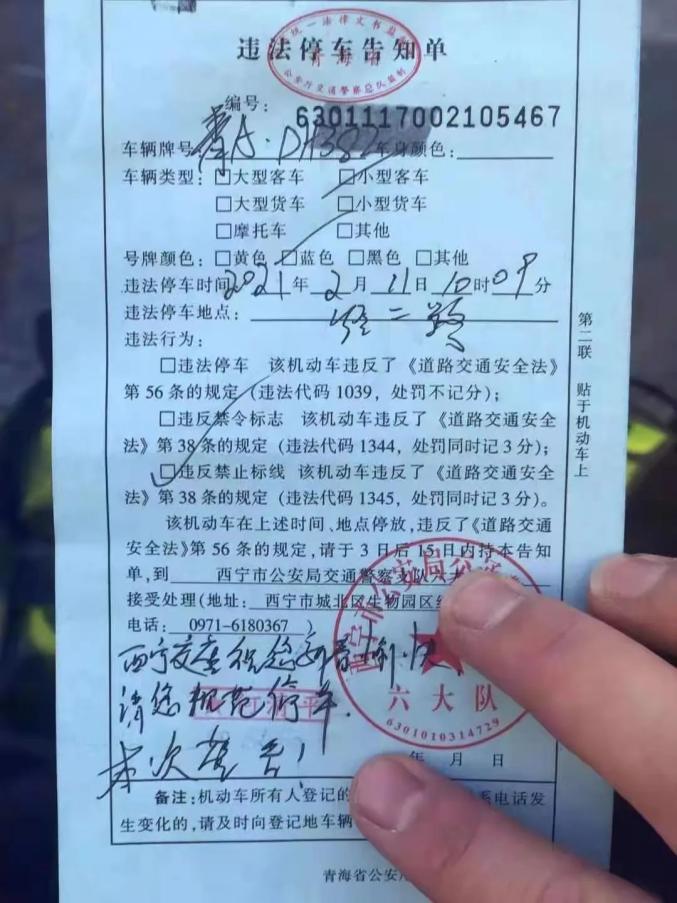 违法停车告知单
统一法律文书监制
青海省
公安厅交通警察总队监制
编号：6301117002105467
车辆牌号 青A·DH387 车身颜色：
车辆类型：□大型客车 □小型客车
□大型货车 □小型货车
□摩托车 □其他
号牌颜色：□黄色 □蓝色 □黑色 □其他
违法停车时间 2021年2月11日10时09分
违法停车地点：经二路
违法行为：
□违法停车 该机动车违反了《道路交通安全法》
第56条的规定（违法代码1039，处罚不记分）；
□违反禁令标志 该机动车违反了《道路交通安全
法》第38条的规定（违法代码1344，处罚同时记3分）；
□违反禁止标线 该机动车违反了《道路交通安全
法》第38条的规定（违法代码1345，处罚同时记3分）。
该机动车在上述时间、地点停放，违反了《道路交通
安全法》第56条的规定，请于3日后15日内持本告知
单，到 西宁市公安局交通警察支队
接受处理（地址：西宁市城北区生物园区
电话：0971-6180367）
西宁交警祝您新春愉快
请您规范停车.
本次警告！
六大队
6301010314729
年 月 日
备注：机动车所有人登记的 系电话发
生变化的，请及时向登记地车辆
青海省公安厅
第二联 贴于机动车上